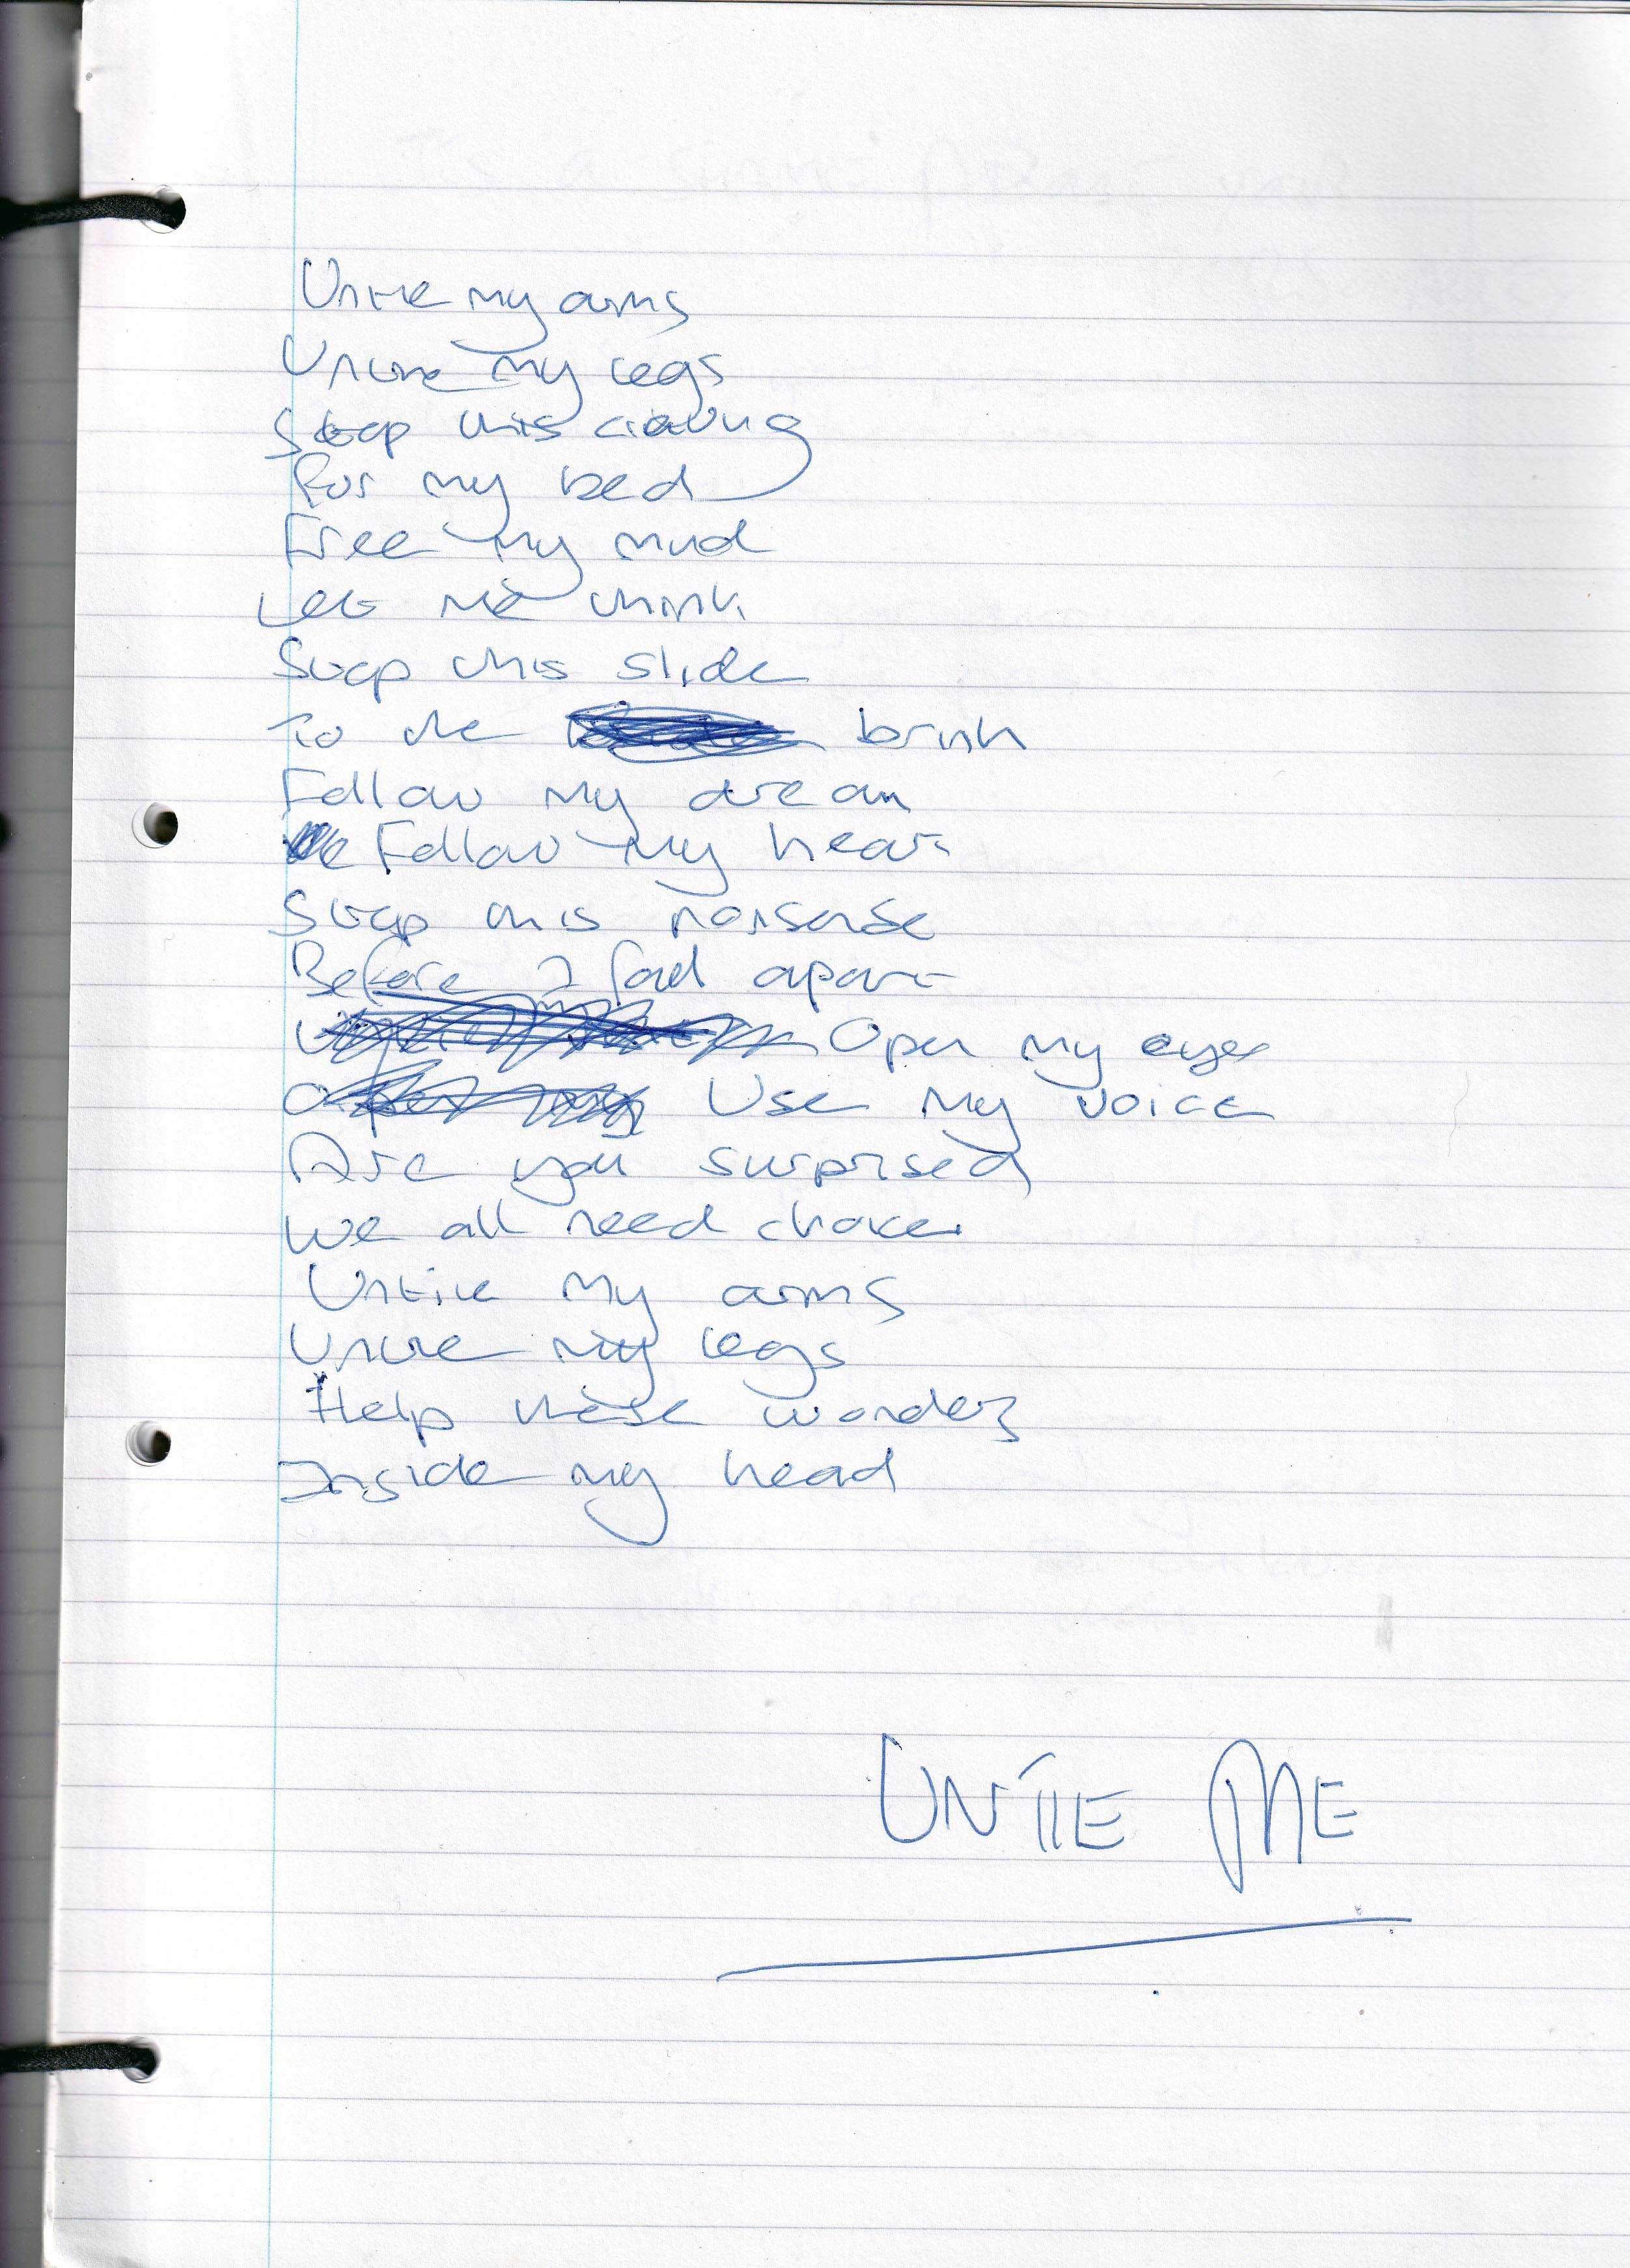 Untie my arms
Untie my legs
Stop this craving
For my bed
Free my mind
Let me think
Stop this slide
To the brink
Follow my dream
Follow my heart
Stop this nonsense
Before I fall apart
Open my eyes
Use my voice
Are you surprised
We all need choice
Untie my arms
Untie my legs
Help these
Inside my head
UNTIE ME